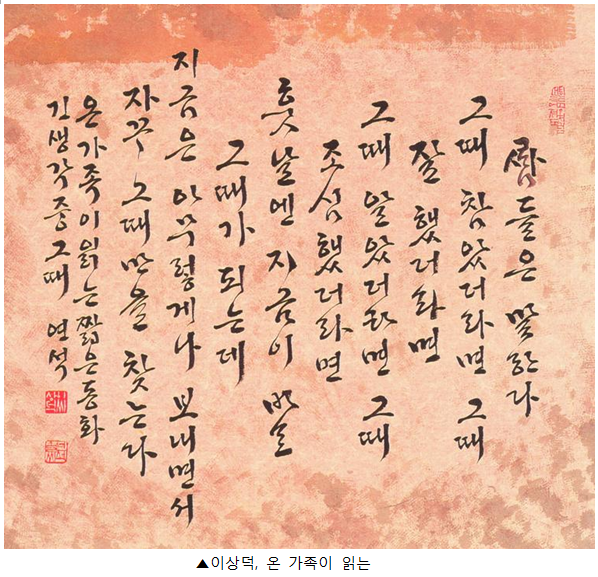 사람들은 말한다
그때 참았더라면 그때
잘 했더라면
그때 알았더라면 그때
조심 했더라면
훗날엔 지금이 바로
그때가 되는데
지금은 아무렇게나 보내면서
자꾸 그때만을 찾는다
온가족이읽는짧은동화
긴생각중그때 연석
▲이상덕, 온 가족이 읽는